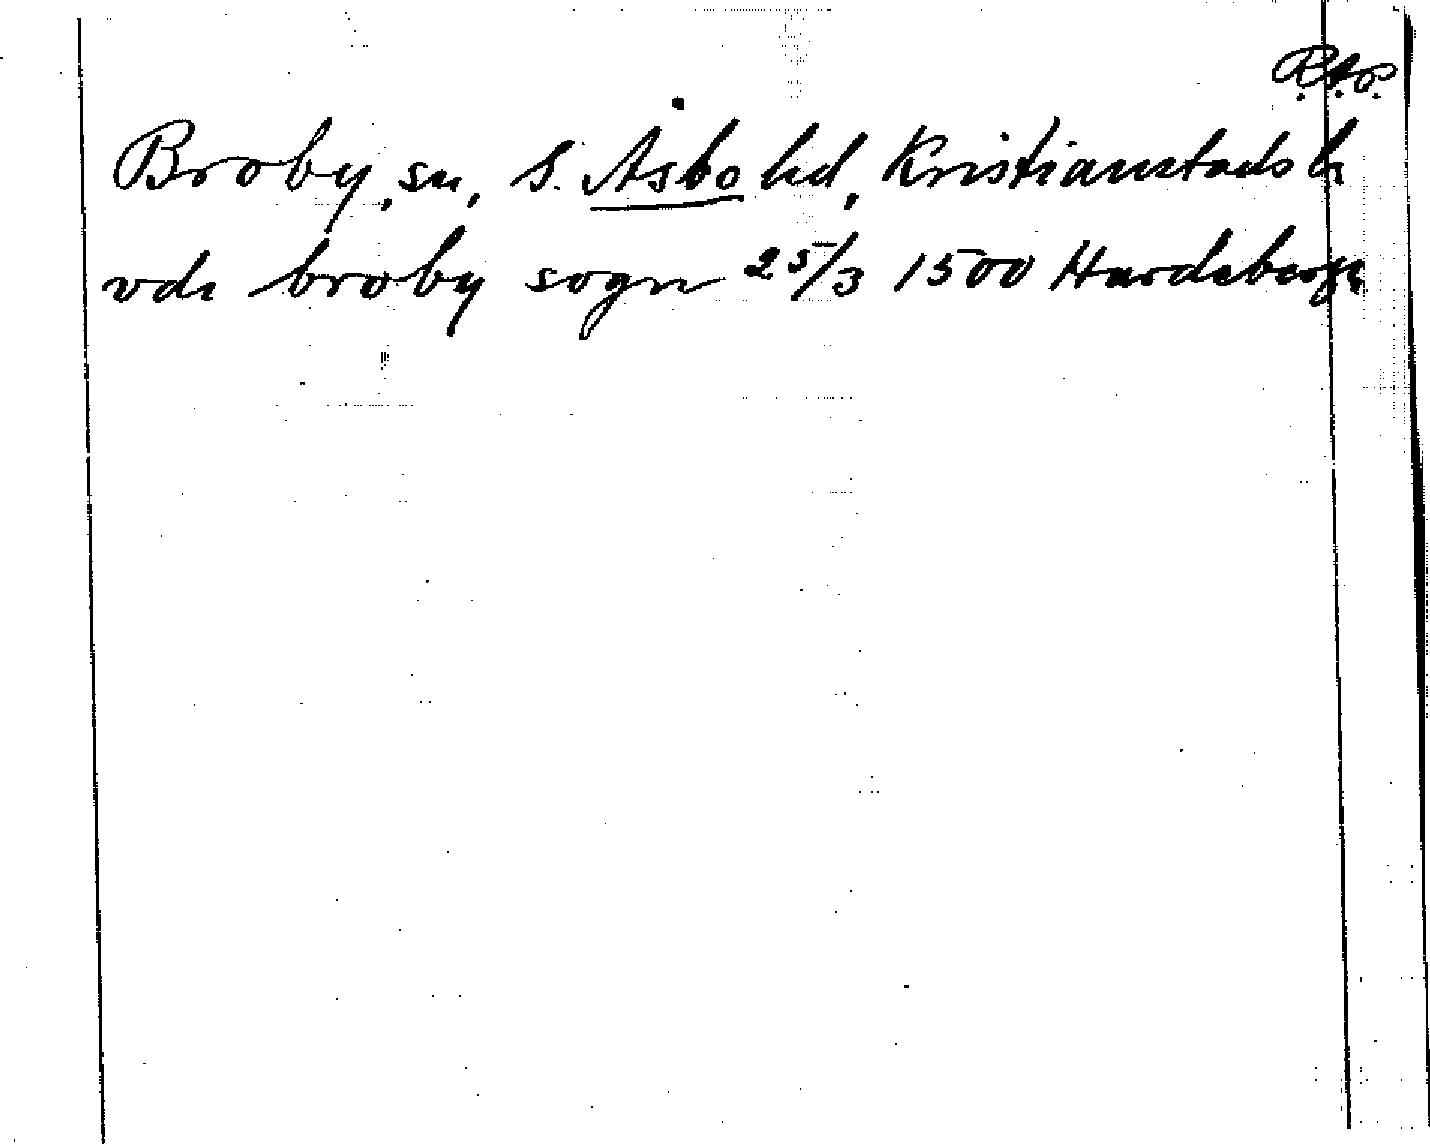 R.A.P.
Broby, sn, S. Åsbo hd, Kristianstads l.
vdi broby sogn 25/3 1500 Hardeberga